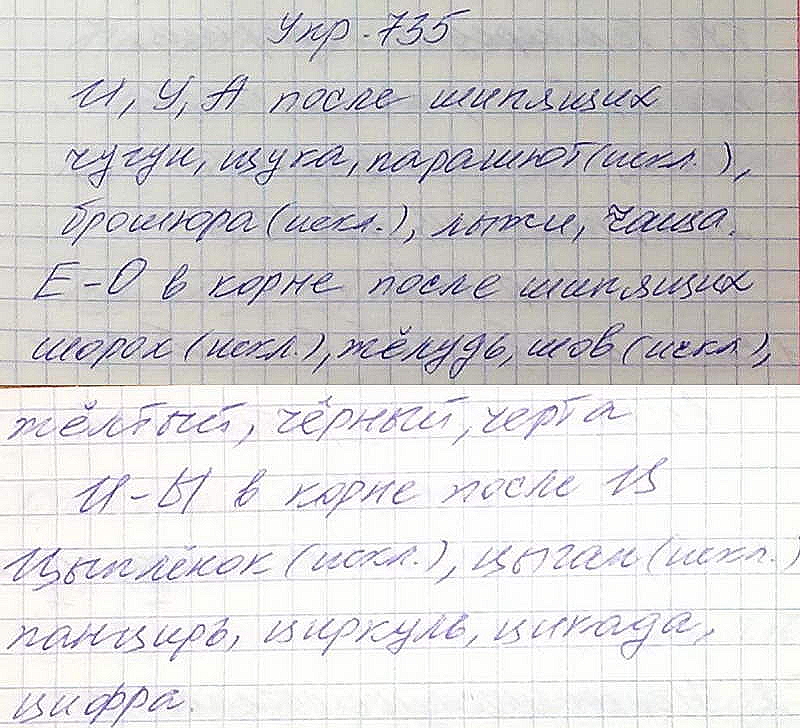 Упр. 735
И, У, А после шипящих
чугун, щука, парашют (искл.),
брошюра (искл.), лыжи, чаща.
Е-О в корне после шипящих
шорох (искл.), жёлудь, шов (искл.),
жёлтый, чёрный, черта
И-Ы в корне после Ц
Цыплёнок (искл.), цыган (искл.)
панцирь, циркуль, цикада,
цифра.